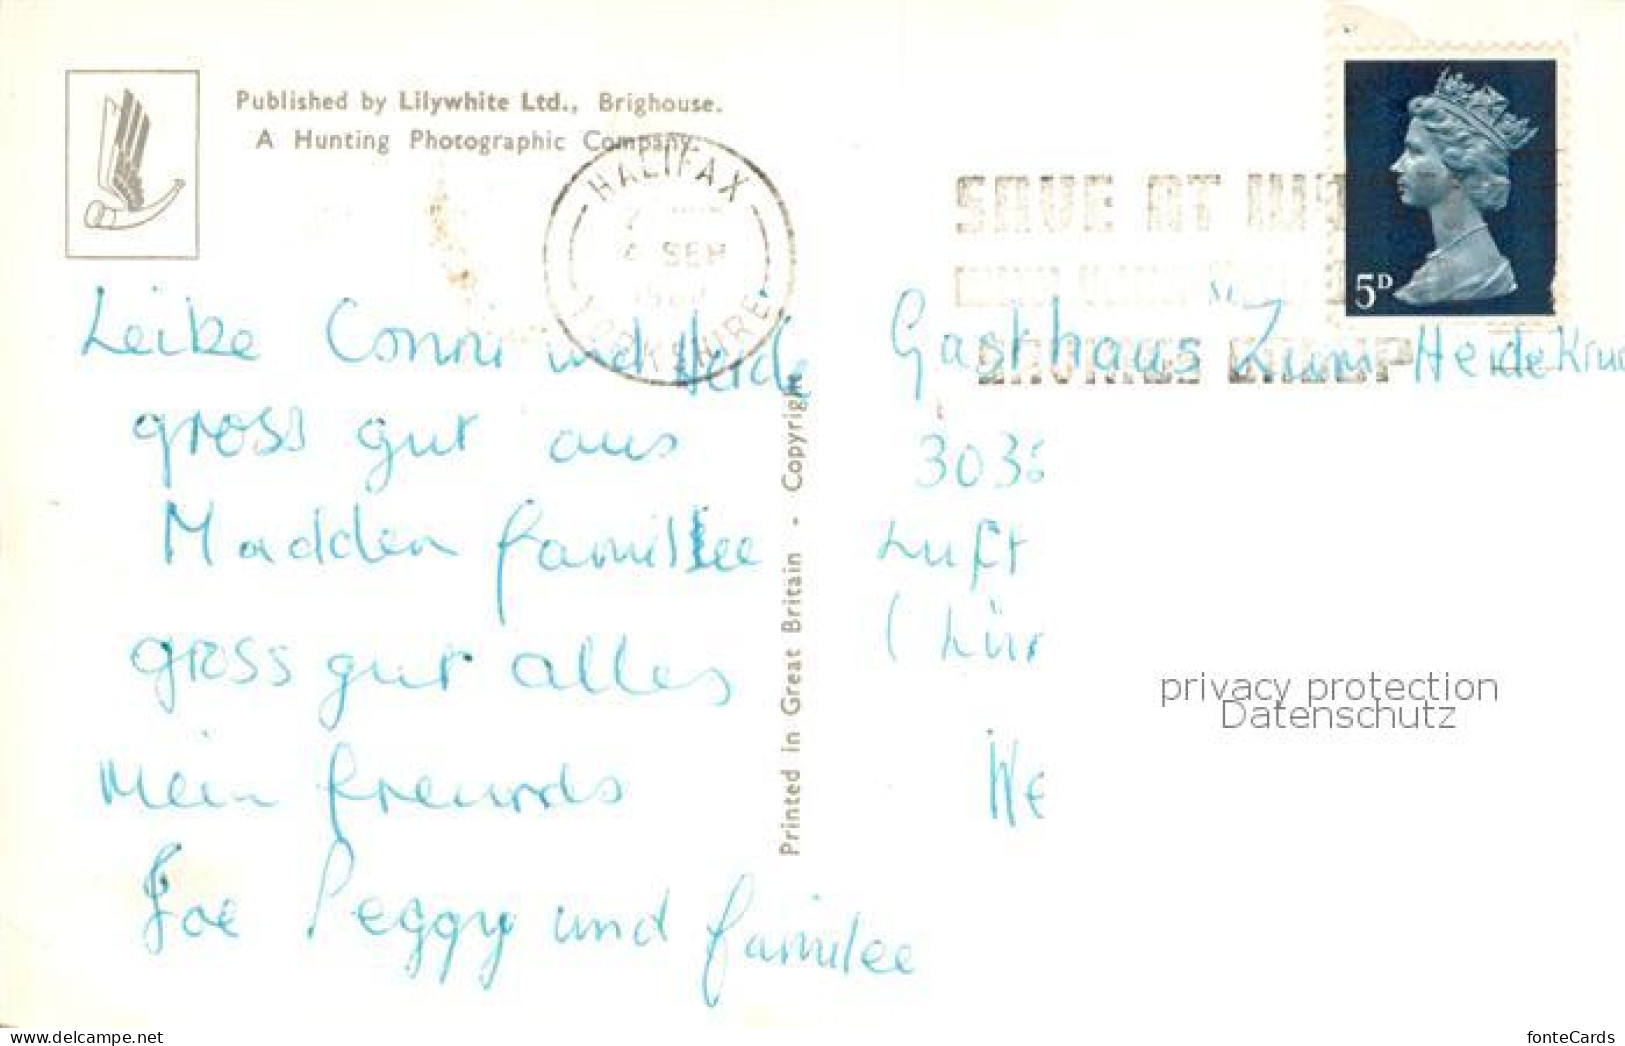 Published by Lilywhite Ltd., Brighouse.
A Hunting Photographic Company.
HALIFAX
4 SEP
YORKSHIRE
SAVE AT
5D
Leike Conni und Heide
gross gut aus
Madden familiee
gross gut alles
mein freunds
Joe Peggy und familee
Printed in Great Britain - Copyright
Gasthaus "Zum Heidekru
303
Luft
(Lür
We
privacy protection
Datenschutz
www.delcampe.net
fonteCards